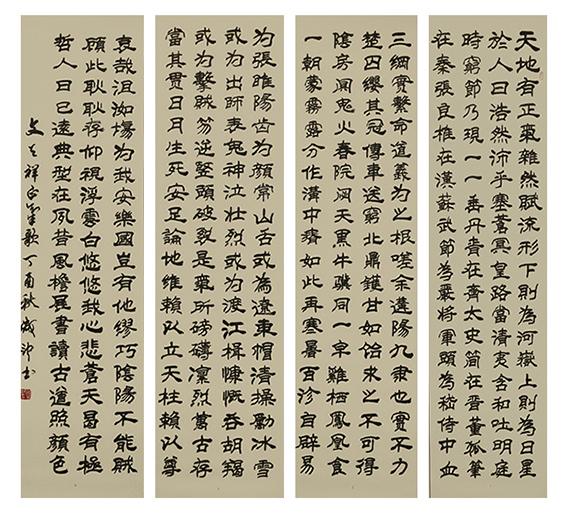 天地有正氣雜然賦流形下則為河嶽上則為日星
於人曰浩然沛乎塞蒼冥皇路當清夷含和吐明庭
時窮節乃現一一垂丹青在齊太史簡在晉董狐筆
在秦張良椎在漢蘇武節為嚴將軍頭為嵇侍中血
三綱實繫命道義為之根嗟余遘陽九隸也實不力
楚囚纓其冠傳車送窮北鼎鑊甘如飴求之不可得
陰房闃鬼火春院閟天黑牛驥同一皁雞棲鳳凰食
一朝蒙霧露分作溝中瘠如此再寒暑百沴自辟易
為張睢陽齒為顏常山舌或為遼東帽清操勵冰雪
或為出師表鬼神泣壯烈或為渡江楫慷慨吞胡羯
或為擊賊笏逆豎頭破裂是氣所磅礴凜烈萬古存
當其貫日月生死安足論地維賴以立天柱賴以尊
哀哉沮洳場為我安樂國豈有他繆巧陰陽不能賊
顧此耿耿存仰視浮雲白悠悠我心悲蒼天曷有極
哲人日已遠典型在夙昔風檐展書讀古道照顏色
文天祥正氣歌丁酉秋